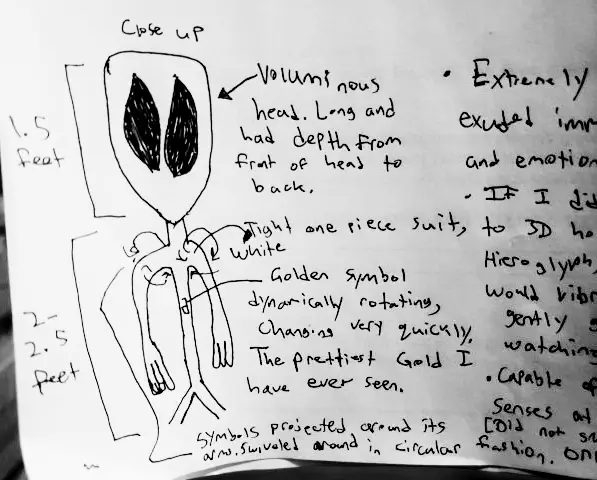 Close up
1.5
feet
Voluminous
head. Long and
had depth from
front of head to
back.
Tight one piece suit,
White
Golden symbol
dynamically rotating,
Changing very quickly.
The prettiest Gold I
have ever seen.
2-
2.5
feet
Symbols projected around its
arms. Swiveled around in circular fashion.
• Extremely
exuded imm
and emotion
• If I did
to 3D ho
Hieroglyph,
would vibr
gently g
watching
• Capable of
Senses at
[Did not sm